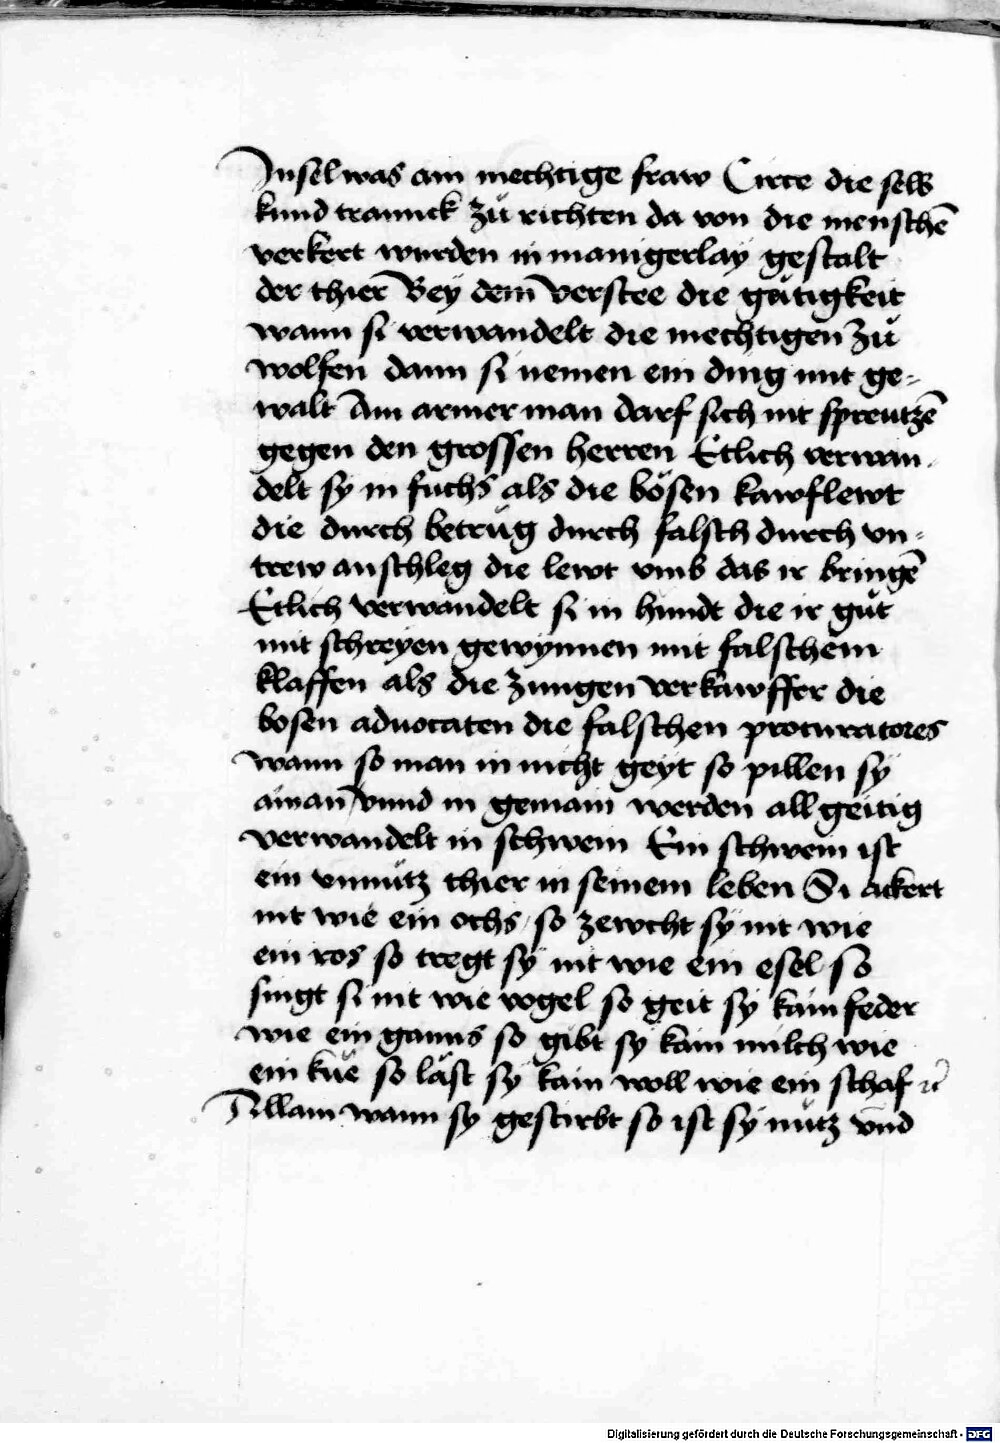 Insel was ain mechtige fraw Circe die selb
kund trannck zů richten da von die menschē
verkert wurden in manigerlay gestalt
der thier Bey dem verstee die gůtigkeit
wann si verwandelt die mechtigen zů
wolfen dann si nemen ein ding mit ge-
walt Ain armer man darf sich nit spreutzē
gegen den grossen herren Etlich verwan-
delt sy in fuchs als die bösen kawflewt
die durch betrůg durch falsch durch vn-
trew anschleg die lewt vmb das ir bringē
Etlich verwandelt si in hundt die ir gůt
mit schreyen gewynnen mit falschem
klaffen als die zungen verkawffer die
bosen aduocaten die falschen procuratores
wann so man in nicht geyt so pillen sy
ainan vnnd in gemain werden all geitig
verwandelt in schwein Ein schwein ist
ein vnnütz thier in seinem leben Si ackert
nit wie ein ochs so zewcht sy nit wie
ein ros so tregt sy nit wie ein esel so
singt si nit wie vogel so geit sy kain feder
wie ein ganns so gibt sy kain milch wie
ein kůe so läst sy kain woll wie ein schaf ꝛc̄
Allain wann sy gestirbt so ist sy nütz vnd
Digitalisierung gefördert durch die Deutsche Forschungsgemeinschaft - DFG